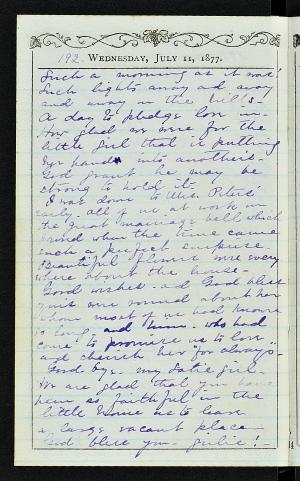 192. WEDNESDAY, JULY 11, 1877.
Such a morning as it was!
Such lights away and away
and away on the hills -
A day to pledge love in -
How glad we were for the
little girl that is putting
her hands into another's -
God grant he may be
strong to hold it -
I was down to Mrs. Peters'
early - all of us at work on
the great marriage bell which
when the time came
such a perfect surprise -
Beautiful flowers were every
where about the house -
Good wishes and God bless
you's were round about her
whom most of us had known
so long, and him - who had
come to promise us to love
and cherish her "for always -
Good bye - my Satie girl -
We are glad that you have
been so faithful in the
little House as to leave
a large vacant place -
God bless you - girlie! -